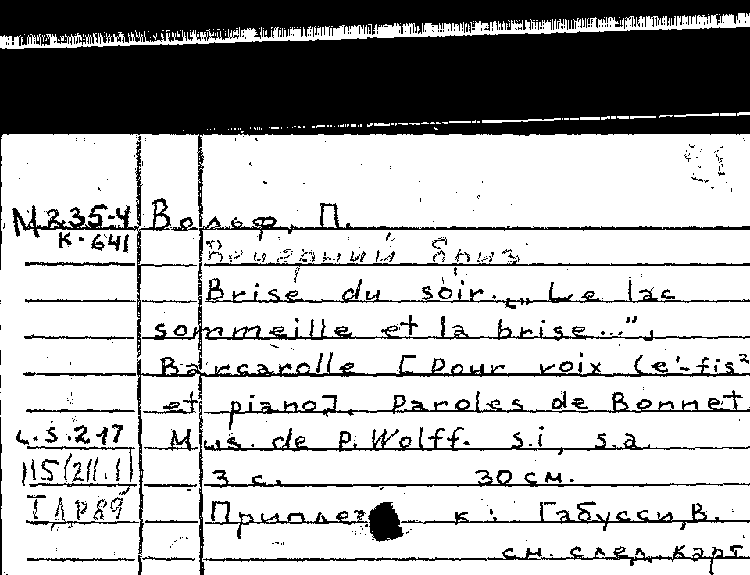 21
М 235-4 Вольф, П.
К-641
Вечерний бриз
Brise du soir. „Le lac
sommeille et la brise...",
Barcarolle [pour voix (e'-fis²
et piano]. Paroles de Bonnet
L.S.217 Mus. de P. Wolff. s.i, s.a.
115(211.1) 3 с. 30 см.
ТЛР89 Приплет к: Габусси, В.
см. след. карт